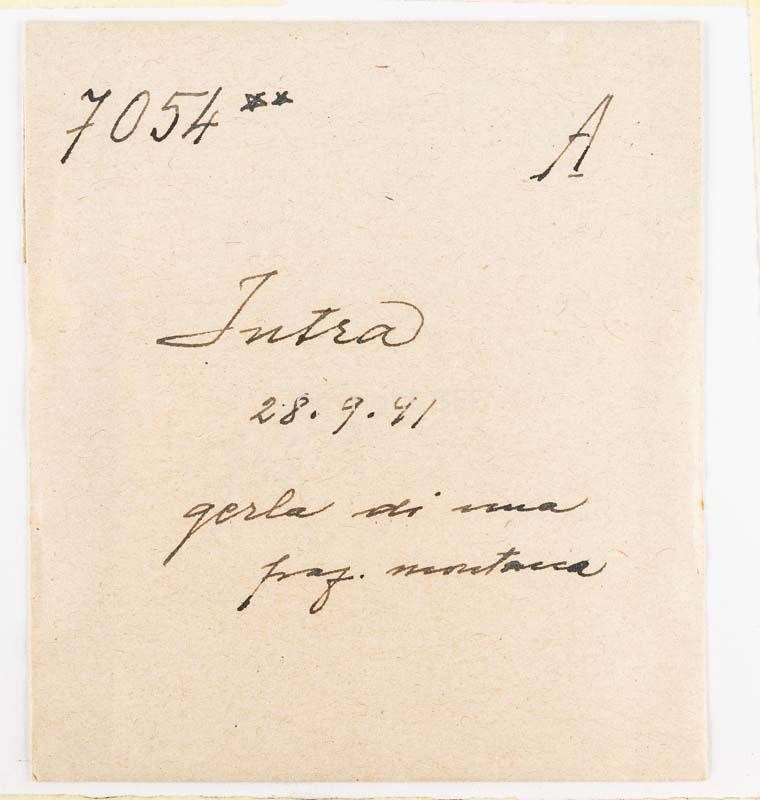 7054**
A
Intra
28.9.41
gerla di una
fraz. montana